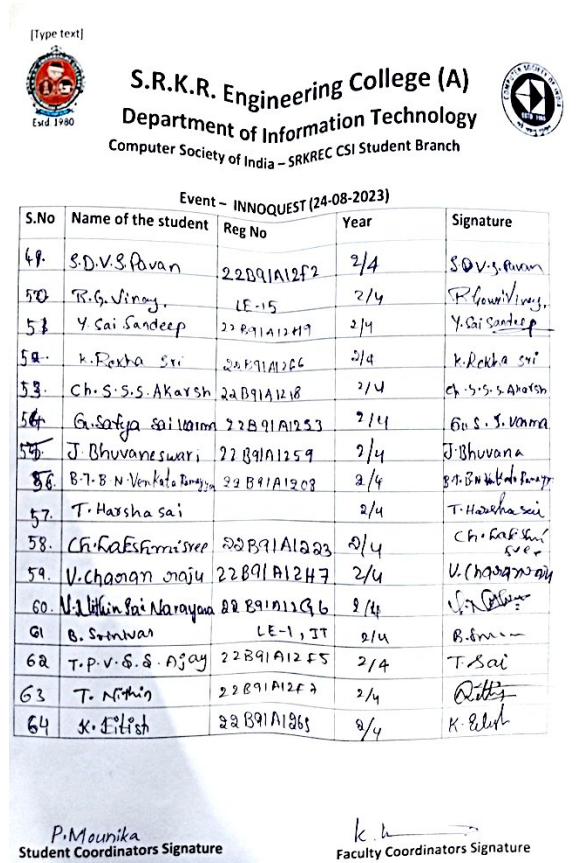 [Type text]
Estd 1980
S.R.K.R. Engineering College (A)
Department of Information Technology
Computer Society of India – SRKREC CSI Student Branch
COMPUTER SOCIETY OF INDIA
Event – INNOQUEST (24-08-2023)
S.No Name of the student Reg No Year Signature
49. S.D.V.S.Pavan 22B91A12F2 2/4 S.D.V.S.Pavan
50 R.G.Vinay, LE-15 2/4 R.GouriVinay,
51 Y. Sai Sandeep 22B91A12H9 2/4 Y.Sai Sandeep
52. K.Rekha Sri 22B91A1266 2/4 K.Rekha Sri
53. Ch.S.S.S.Akarsh 22B91A1218 2/4 Ch.S.S.S.Akarsh
54 G.Satya Sai Varma 22B91A1253 2/4 G. S. S. Varma
55 J.Bhuvaneswari 22B91A1259 2/4 J.Bhuvana
56. B.T.B.N.Venkata 22B91A1208 2/4
57. T.Harsha sai 2/4 T.Harsha sai
58. Ch.Lakshmisree 22B91A1223 2/4 Ch.Lakshmi sree
59. V.Charan raju 22B91A12H7 2/4 V.Charan raju
60. V.Nithin Sai Narayana 22B91A12G6 2/4
61 B. Srinivas LE-1, IT 2/4
62 T.P.V.S.S.Ajay 22B91A12F5 2/4 T.Sai
63 T. Nithin 22B91A12F7 2/4
64 K. 22B91A1265 2/4 K.
P.Mounika
Student Coordinators Signature
Faculty Coordinators Signature